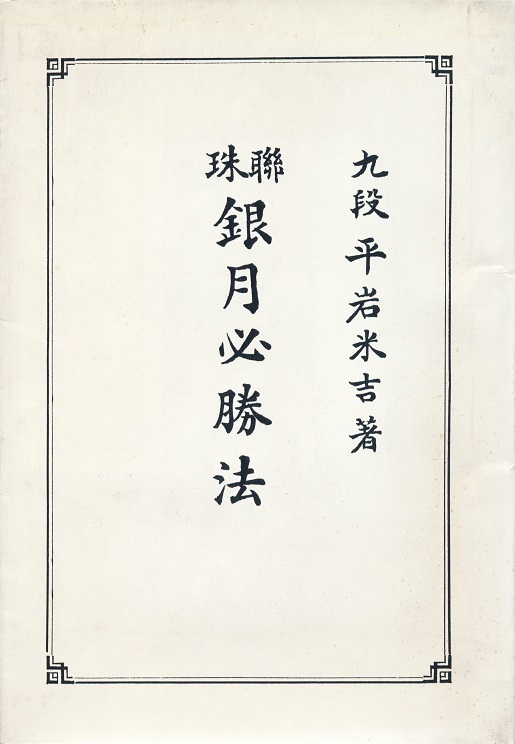 九段 平岩米吉著
聯珠
銀月必勝法